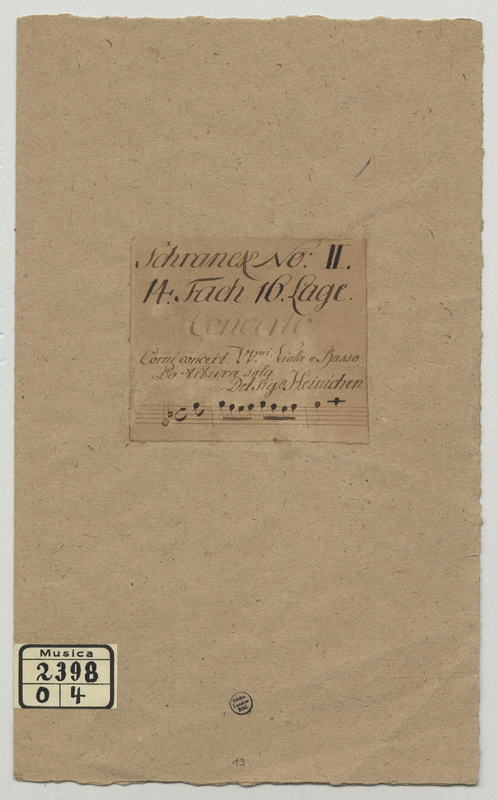 Schranck No: II.
14. Fach 16. Lage.
Concerto
Corni concert. VV.ni Viola e Basso
Partitura sola
Del Sigr. Heinichen
Musica
2398
O 4
Sächs.
Landes-
Bibl.
13